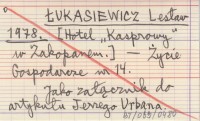 ŁUKASIEWICZ Lesław
1978. [Hotel „Kasprowy”
w Zakopanem.] — Życie
Gospodarcze nr 14.
Jako załącznik do
artykułu Jerzego Urbana.